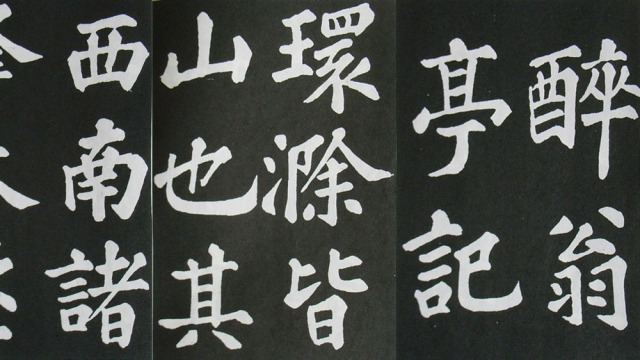 醉翁
亭記
環滁皆
山也其
西南諸